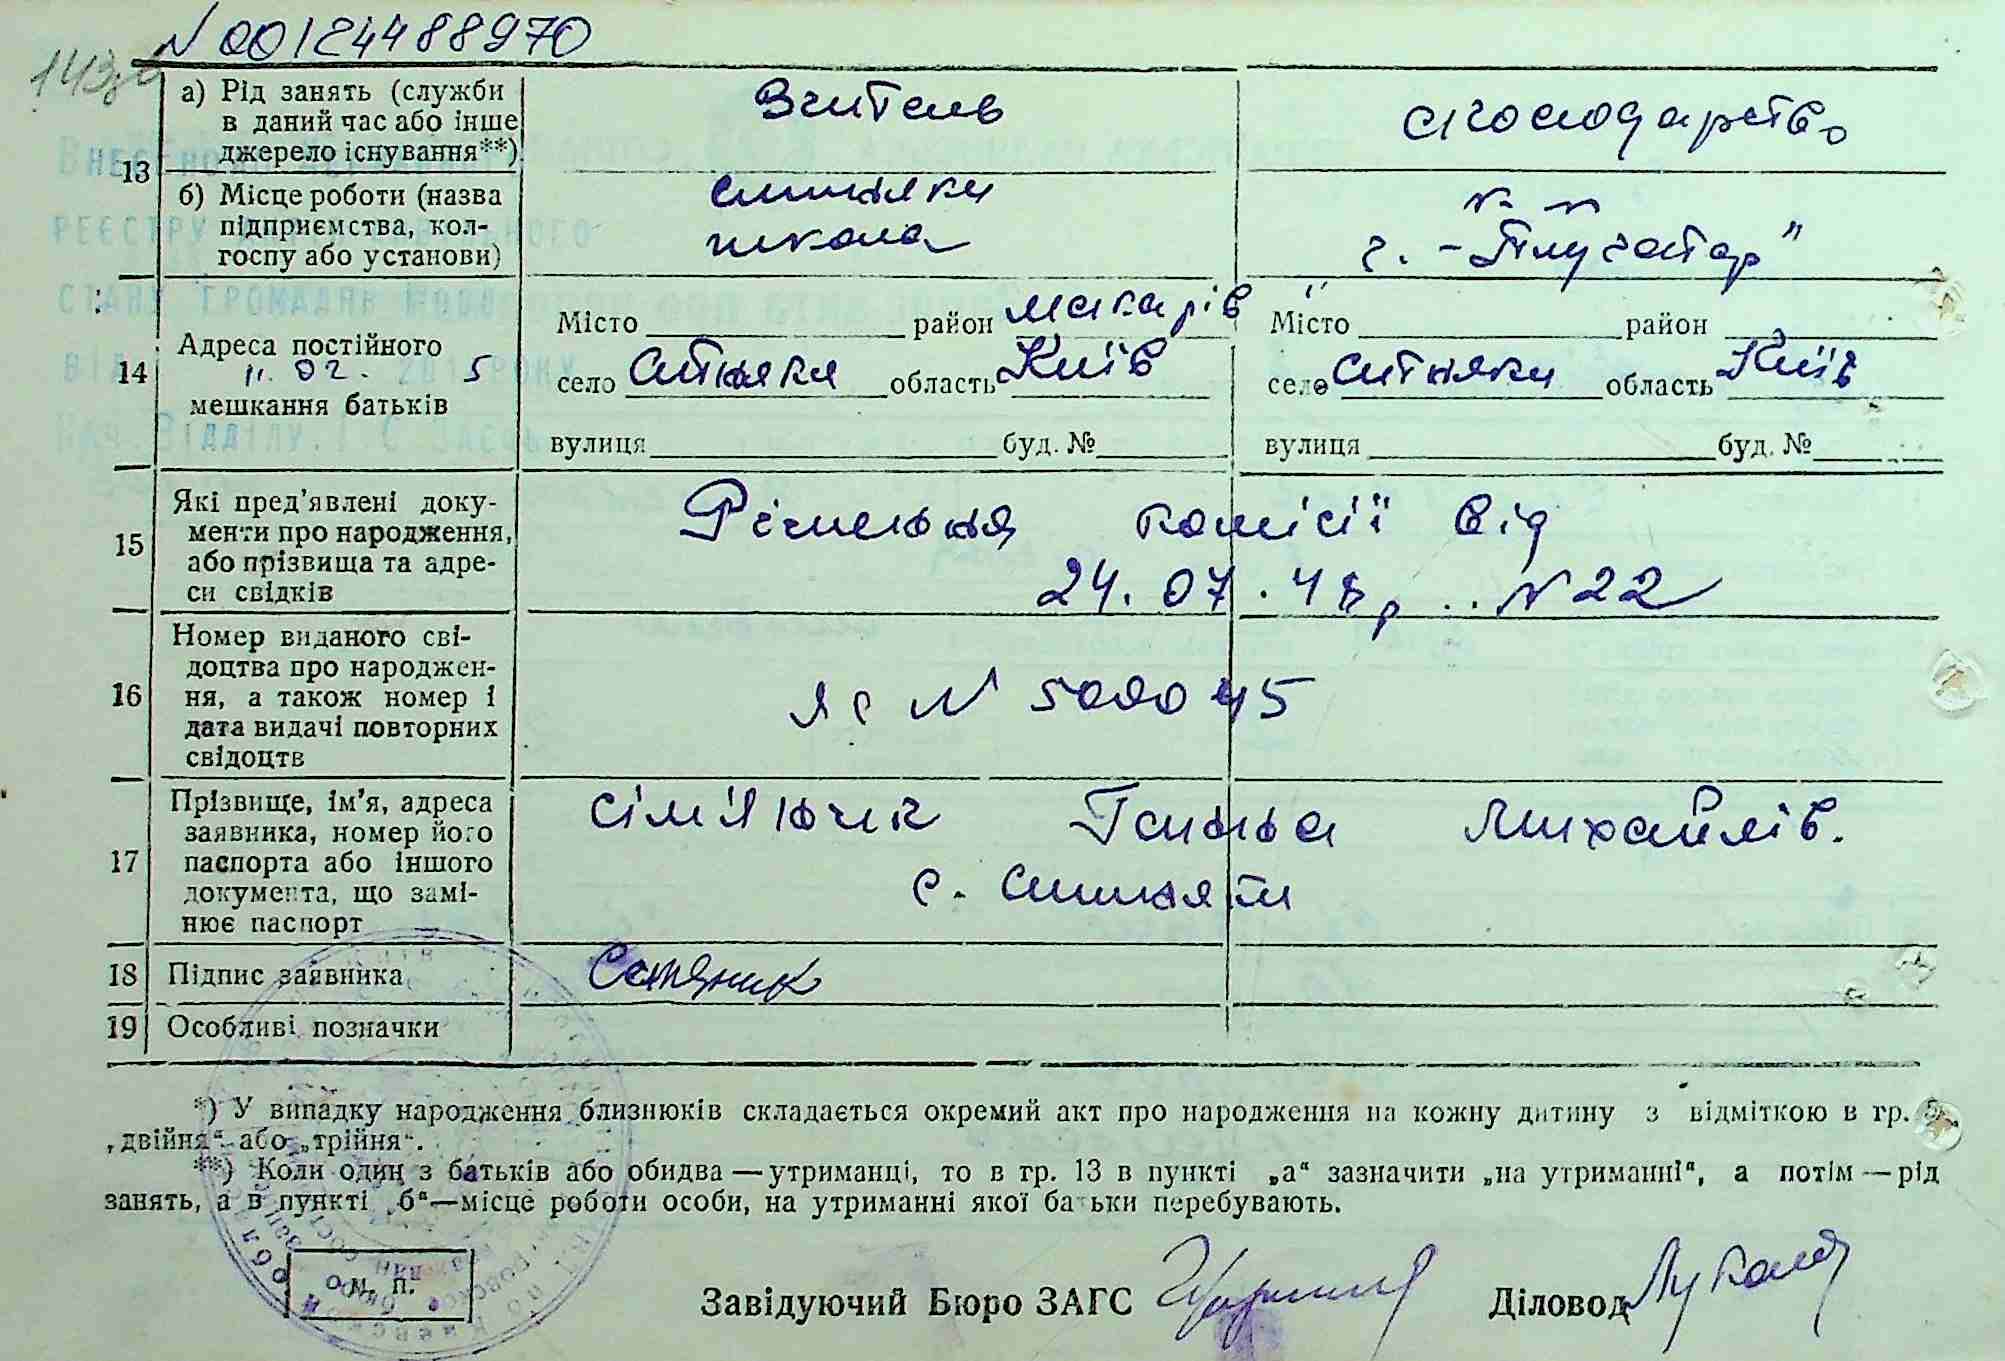 N 00124488970
143
13 а) Рід занять (служби в даний час або інше джерело існування**)
Вчитель
сгосподарство
б) Місце роботи (назва підприємства, колгоспу або установи)
ситняки
школа
г. - „Плугатар"
14 Адреса постійного мешкання батьків
Місто район Макарів
село Ситняки область Київ
вулиця буд. №
Місто район "
село ситняки область Київ
вулиця буд. №
ВНЕСЕНО ДО ДЕРЖАВНОГО
РЕЄСТРУ АКТІВ ЦИВІЛЬНОГО
СТАНУ ГРОМАДЯН
ВІД 11.02. 2015 РОКУ
НАЧ. ВІДДІЛУ
15 Які пред'явлені документи про народження, або прізвища та адреси свідків
Рішення комісії від
24.07.48 р. N 22
16 Номер виданого свідоцтва про народження, а також номер і дата видачі повторних свідоцтв
ЯС N 500045
17 Прізвище, ім'я, адреса заявника, номер його паспорта або іншого документа, що замінює паспорт
Ганна Михайлів.
с. Ситняки
18 Підпис заявника
19 Особливі позначки
*) У випадку народження близнюків складається окремий акт про народження на кожну дитину з відміткою в гр. 5
„двійня" або „трійня".
**) Коли один з батьків або обидва — утриманці, то в гр. 13 в пункті „а" зазначити „на утриманні", а потім — рід
занять, а в пункті „б"—місце роботи особи, на утриманні якої батьки перебувають.
М. П.
Завідуючий Бюро ЗАГС
Діловод